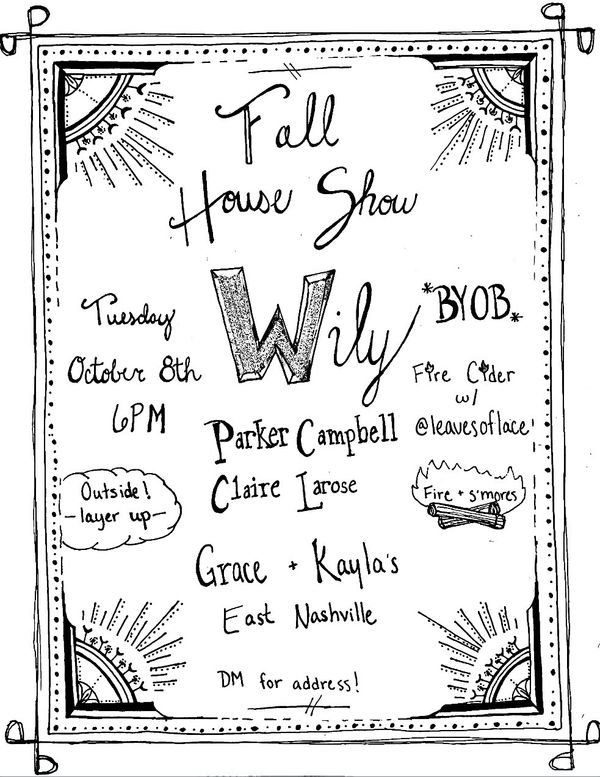 Fall
House Show
Wily
Tuesday
October 8th
6PM
*BYOB*
Fire Cider
w/
@leavesoflace
Parker Campbell
Claire Larose
Outside!
-layer up-
Fire + s'mores
Grace + Kayla's
East Nashville
DM for address!